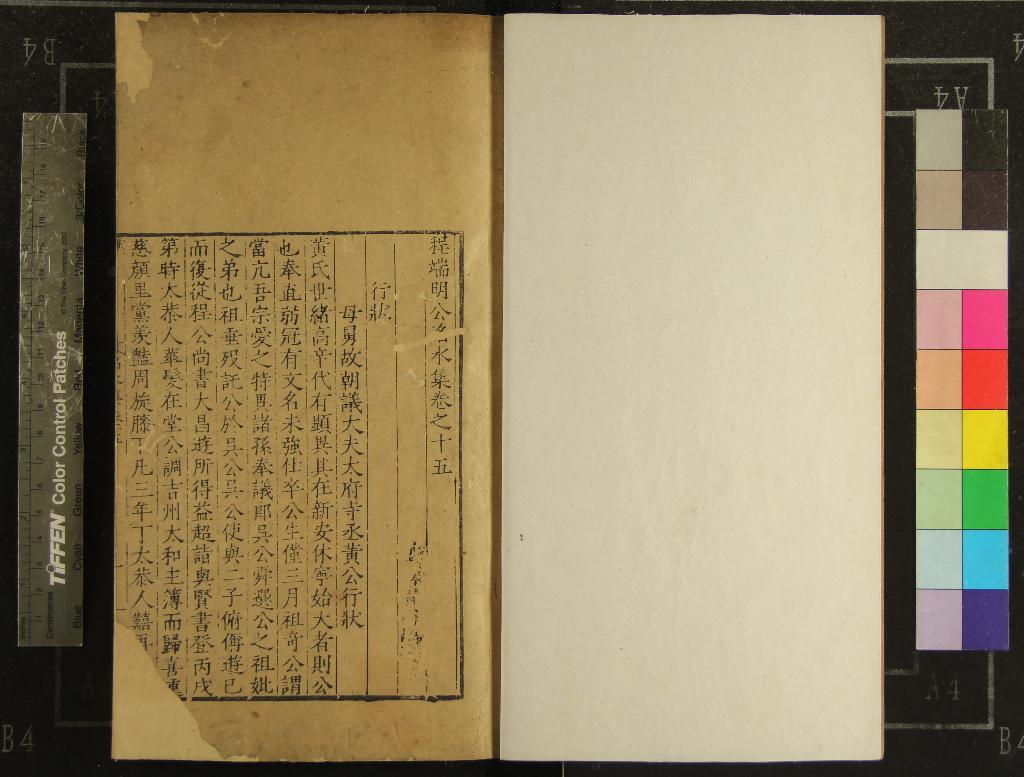 程端明公洺水集卷之十五
行狀
母舅故朝議大夫太府寺丞黃公行狀
黃氏世緒高辛代有顯異其在新安休寧始大者則公
也奉直蒻冠有文名未強仕卒公生僅三月祖奇公謂
當亢吾宗愛之特異諸孫奉議郎吳公舜選公之祖妣
之弟也祖垂歿託公於吳公吳公使與二子俯傅遊已
而復從程公尚書大昌遊所得益超詣與賢書登丙戌
第時太恭人華髮在堂公調吉州太和主簿而歸喜動
慈顏里黨羨豔周旋膝下凡三年丁太恭人囏
TIFFEN Color Control Patches
© The Tiffen Company, 2007
Centimetres
Inches
Blue
Cyan
Green
Yellow
Red
Magenta
White
3/Color
Black
B4
A4
A4
A4
A4
B4
B4